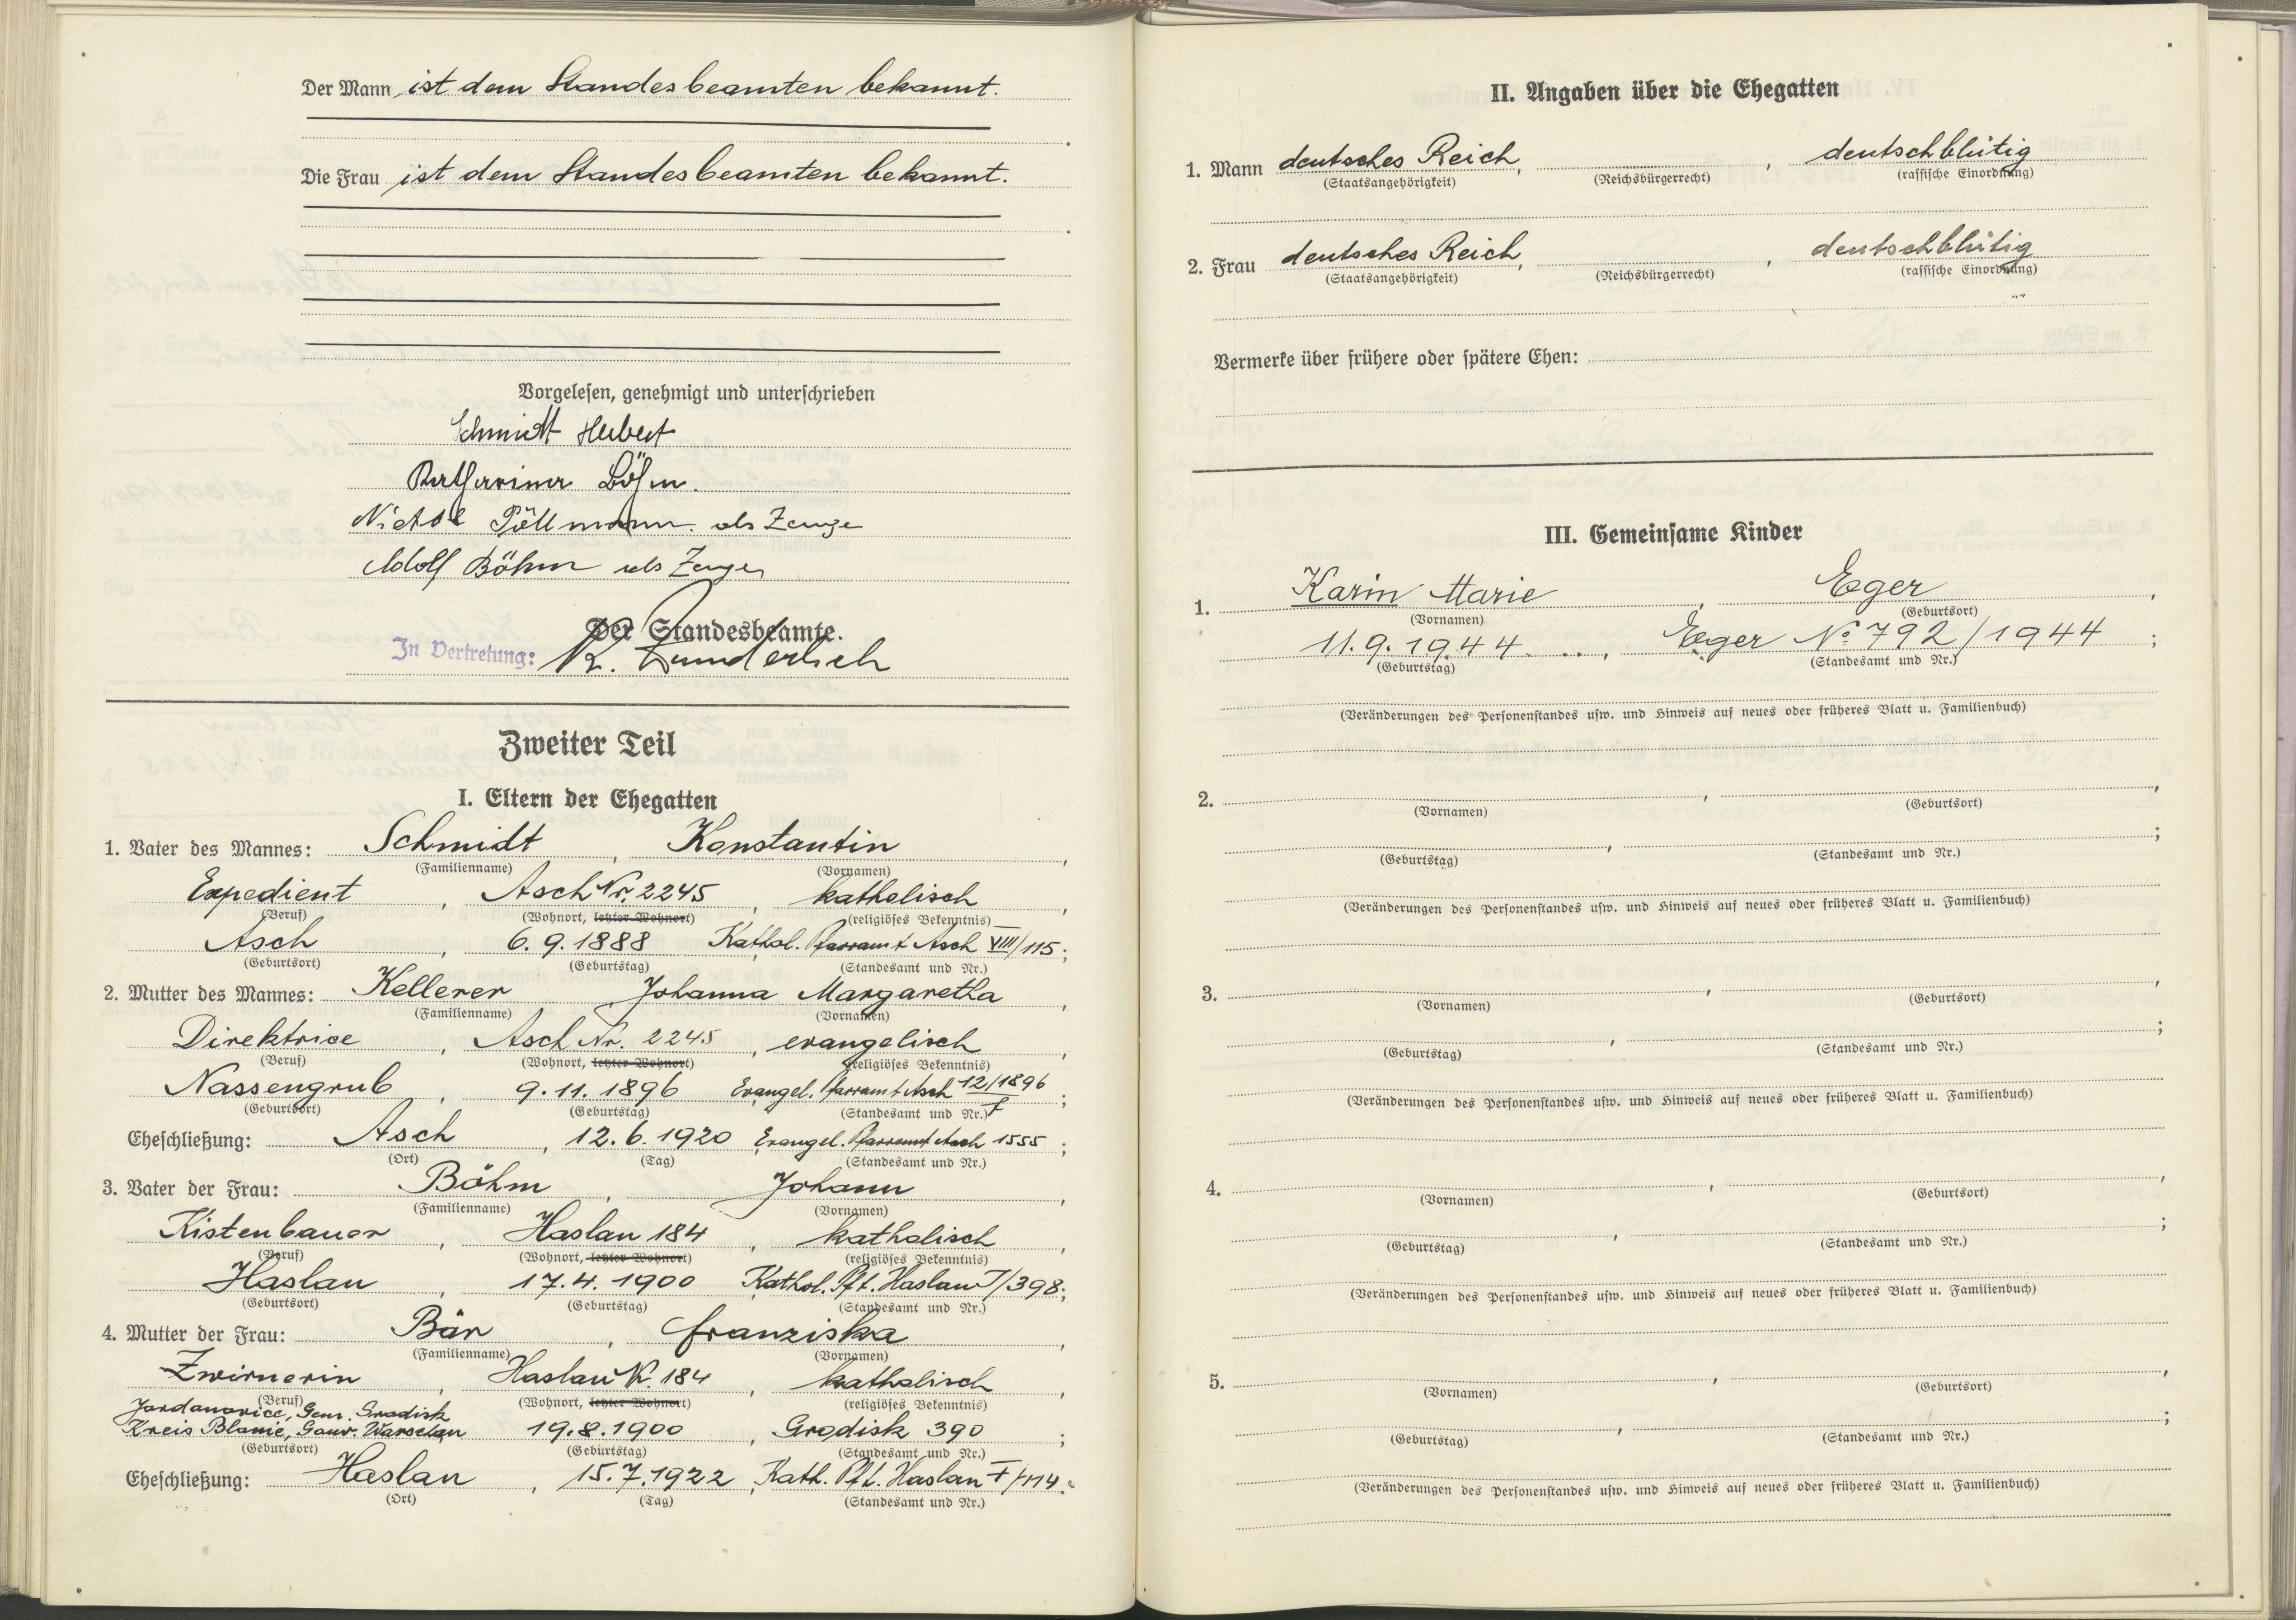 Der Mann ist dem Standesbeamten bekannt.
Die Frau ist dem Standesbeamten bekannt.
Vorgelesen, genehmigt und unterschrieben
Schmidt Herbert
Katharina Böhm.
Pöllmann als Zeuge
Adolf Böhm als Zeuge
Der Standesbeamte.
In Vertretung: K. Künderlich
Zweiter Teil
I. Eltern der Ehegatten
1. Vater des Mannes: Schmidt, Konstantin,
(Familienname) (Vornamen)
Expedient, Asch Nr. 2245, katholisch,
(Beruf) (Wohnort, letzter Wohnort) (religiöses Bekenntnis)
Asch, 6.9.1888 Kathol. Pfarramt Asch VIII/115;
(Geburtsort) (Geburtstag) (Standesamt und Nr.)
2. Mutter des Mannes: Kellerer, Johanna Margaretha,
(Familienname) (Vornamen)
Direktrice, Asch Nr. 2245, evangelisch,
(Beruf) (Wohnort, letzter Wohnort) (religiöses Bekenntnis)
Nassengrub, 9.11.1896 Evangel. Pfarramt Asch 12/1896;
(Geburtsort) (Geburtstag) (Standesamt und Nr.)
Eheschließung: Asch, 12.6.1920, Evangel. Pfarramt Asch 1555;
(Ort) (Tag) (Standesamt und Nr.)
3. Vater der Frau: Böhm, Johann,
(Familienname) (Vornamen)
Kistenbauer, Haslau 184, katholisch,
(Beruf) (Wohnort, letzter Wohnort) (religiöses Bekenntnis)
Haslau, 17.4.1900 Kathol. Pft. Haslau I/398;
(Geburtsort) (Geburtstag) (Standesamt und Nr.)
4. Mutter der Frau: Bär, Franziska,
(Familienname) (Vornamen)
Zwirnerin, Haslau N. 184, katholisch,
(Beruf) (Wohnort, letzter Wohnort) (religiöses Bekenntnis)
Jordanovice, Gem. Grodisk
Kreis Blonie, Gouv. Warschau 19.8.1900, Grodisk 390;
(Geburtsort) (Geburtstag) (Standesamt und Nr.)
Eheschließung: Haslau, 15.7.1922, Kath. Pft. Haslau I/114.
(Ort) (Tag) (Standesamt und Nr.)
II. Angaben über die Ehegatten
1. Mann deutsches Reich, , deutschblütig
(Staatsangehörigkeit) (Reichsbürgerrecht) (rassische Einordnung)
2. Frau deutsches Reich, , deutschblütig
(Staatsangehörigkeit) (Reichsbürgerrecht) (rassische Einordnung)
Vermerke über frühere oder spätere Ehen:
III. Gemeinsame Kinder
1. Karin Marie, Eger,
(Vornamen) (Geburtsort)
11.9.1944, Eger No 792/1944;
(Geburtstag) (Standesamt und Nr.)
(Veränderungen des Personenstandes usw. und Hinweis auf neues oder früheres Blatt u. Familienbuch)
2. , ,
(Vornamen) (Geburtsort)
, ;
(Geburtstag) (Standesamt und Nr.)
(Veränderungen des Personenstandes usw. und Hinweis auf neues oder früheres Blatt u. Familienbuch)
3. , ,
(Vornamen) (Geburtsort)
, ;
(Geburtstag) (Standesamt und Nr.)
(Veränderungen des Personenstandes usw. und Hinweis auf neues oder früheres Blatt u. Familienbuch)
4. , ,
(Vornamen) (Geburtsort)
, ;
(Geburtstag) (Standesamt und Nr.)
(Veränderungen des Personenstandes usw. und Hinweis auf neues oder früheres Blatt u. Familienbuch)
5. , ,
(Vornamen) (Geburtsort)
, ;
(Geburtstag) (Standesamt und Nr.)
(Veränderungen des Personenstandes usw. und Hinweis auf neues oder früheres Blatt u. Familienbuch)